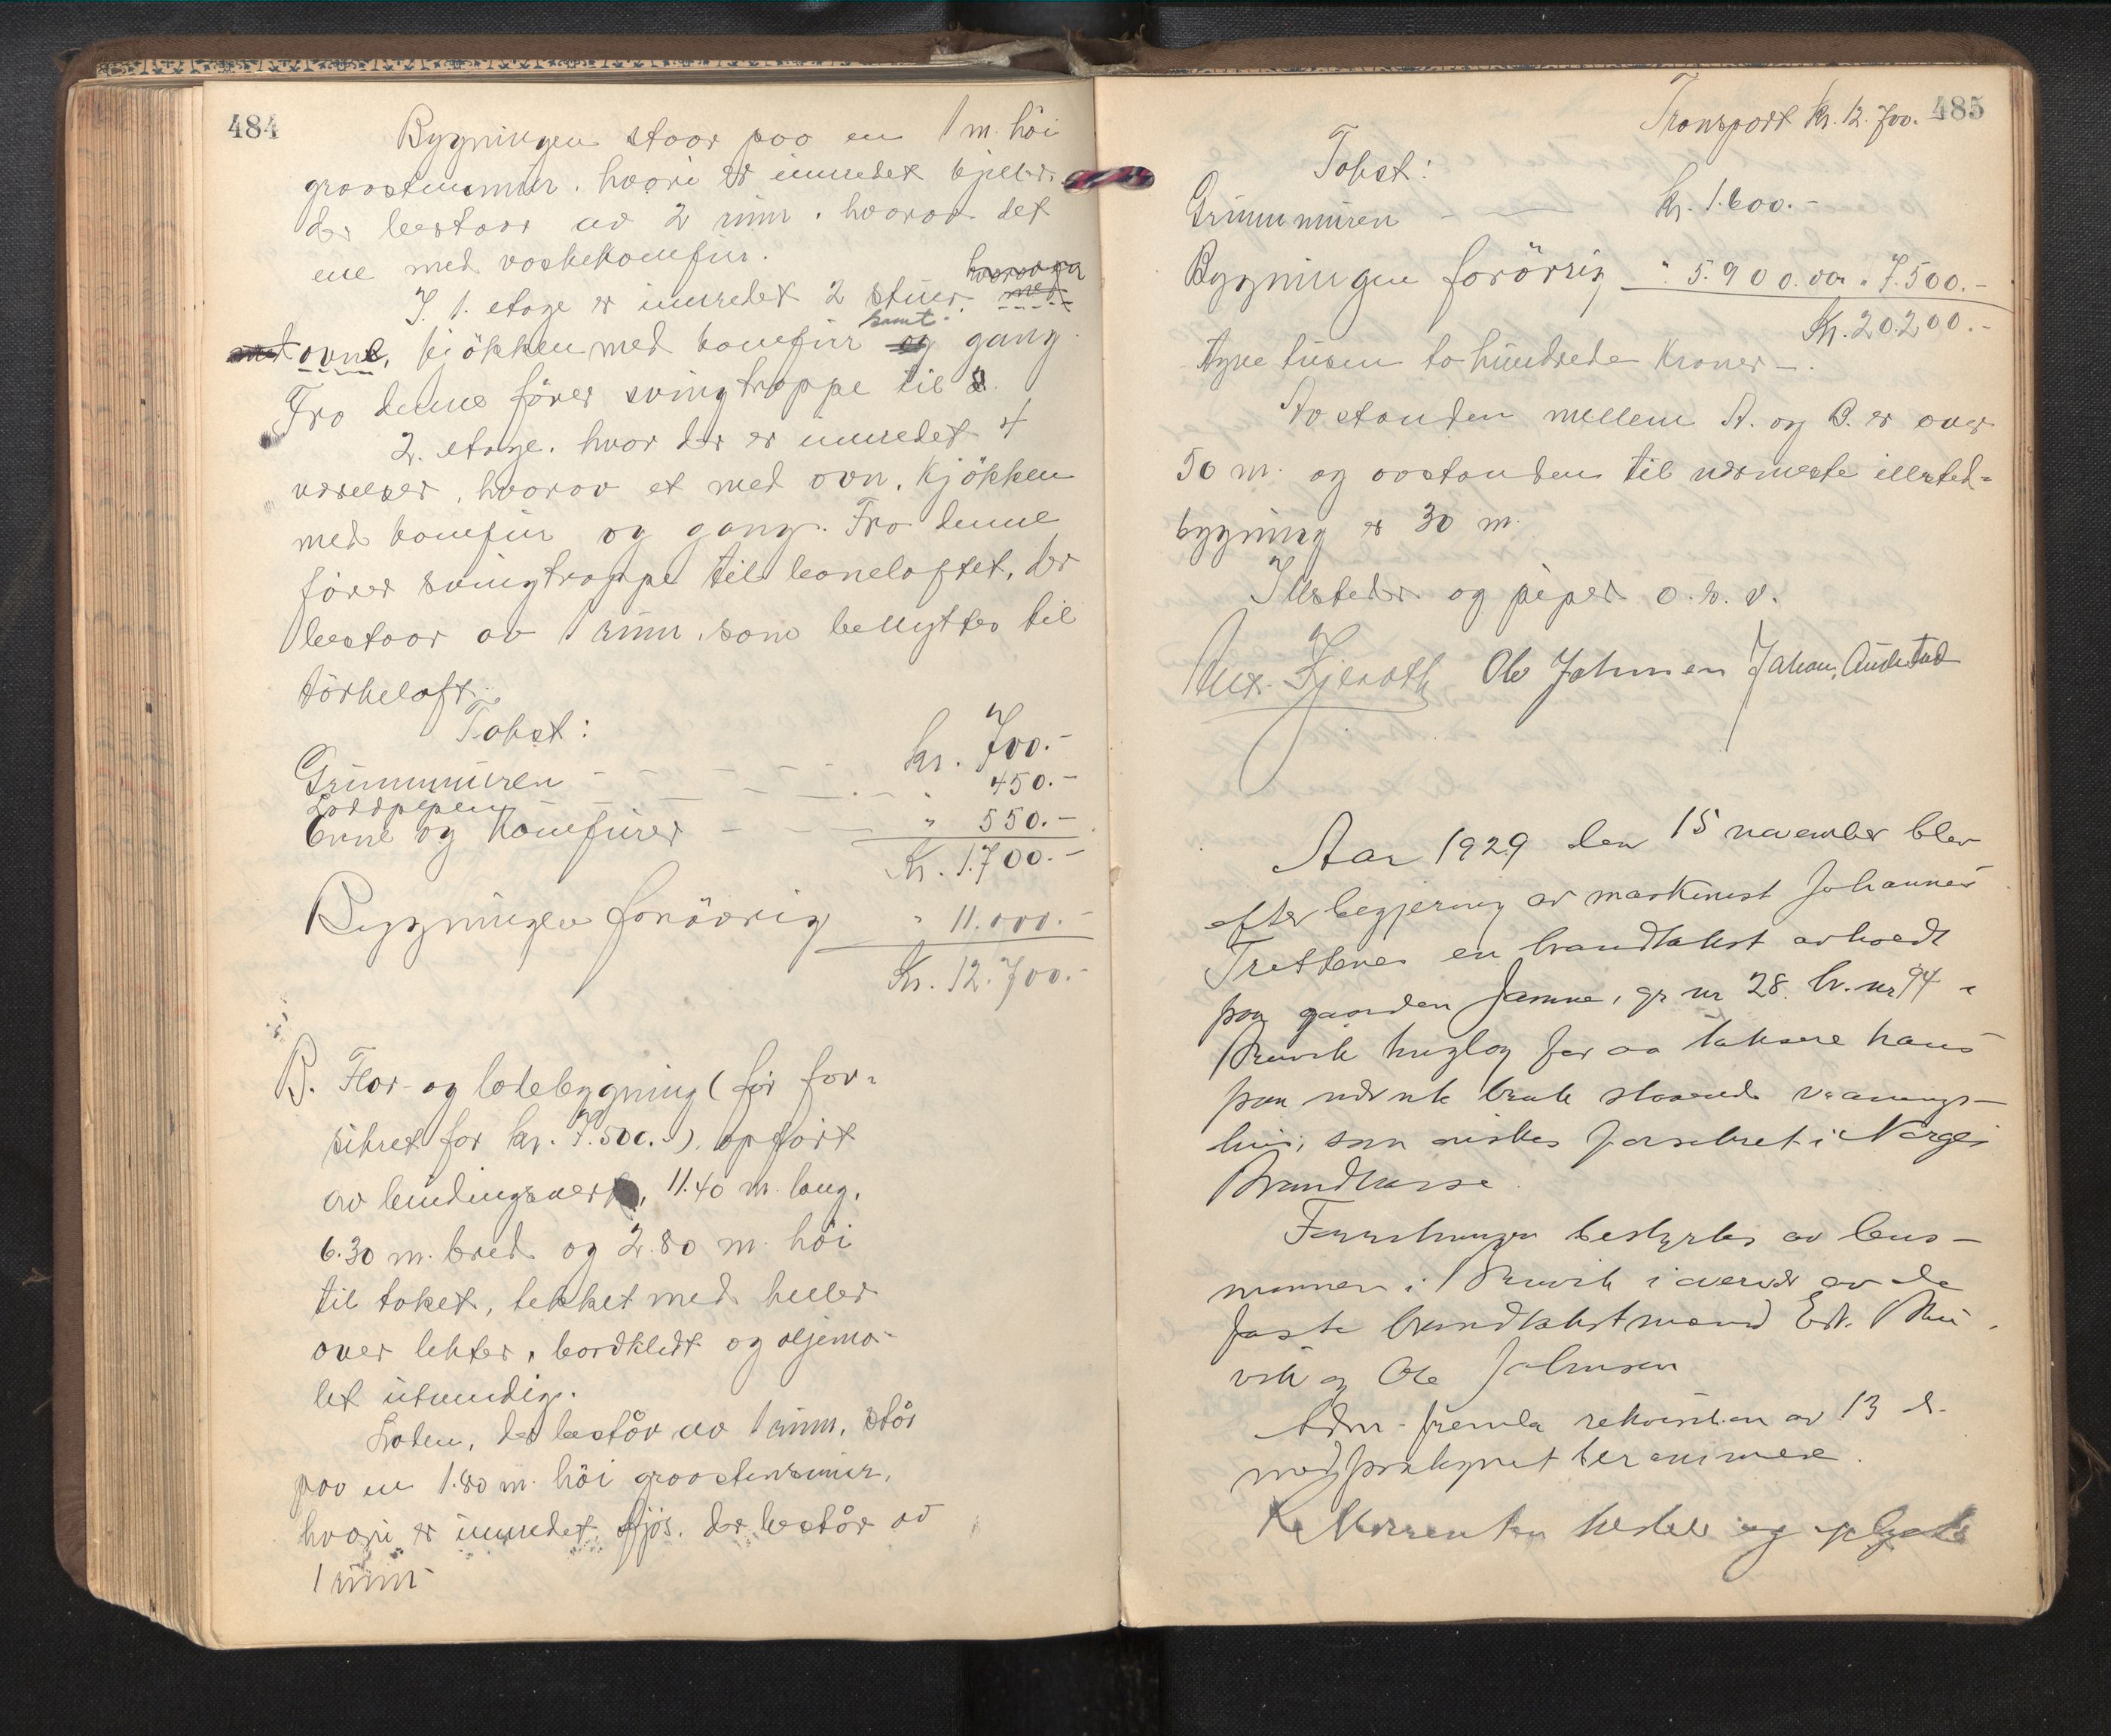 484
Bygningen staar paa en 1 m. høi
graastensmur, hvori er innredet kjeller,
der bestaar av 2 rum, hvorav det
ene med vaskekomfur.
I 1. etage er innredet 2 stuer,
ovne, kjøkken med komfur samt gang.
Fra denne fører svingtrappe til
2. etage, hvor der er innredet 4
værelser, hvorav et med ovn, kjøkken
med komfur og gang. Fra denne
fører svingtrappe til haneloftet, der
bestaar av 1 rum, som benyttes til
tørkeloft.
Takst:
Grunnmuren - - - - - kr. 700.-
Loddpipen - - - - " 450.-
Ovne og Komfurer - - - " 550.-
Kr. 1.700.-
Bygningen forøvrig " 11.000.-
Kr. 12.700.-
B. Flor- og løbebygning (før for-
sikret for kr. 7.500.-), opført
av bindingsverk, 11.40 m. lang,
6.30 m. bred og 2.80 m. høi
til taket, tekket med heller
over lekter, bordklædt og oljema-
let utvendig.
Løden, der består av 1 rum, står
paa en 1.80 m. høi graastensmur,
hvori er innredet fjøs, der består av
1 rum
485
Transport kr. 12.700.-
Takst:
Grunnmuren - — kr. 1.600.-
Bygningen forøvrig " 5.900.00 " 7.500.-
Kr. 20.200.-
tyve tusen to hundrede Kroner -.
Avstanden mellem A. og B. er over
50 m. og avstanden til nærmeste illsted-
bygning er 30 m.
Illsteder og piper o.s.v.
Ole Johnsen Johan Aadstad
Aar 1929 den 15 november blev
efter begjæring av maskinist Johannes
Trettenes en brandtakst avholdt
paa gaarden Jamne, gr nr 28 br. nr 94 i
Bruvik tinglag for aa taksere hans
paa nævnte bruk staaende vaanings-
hus, som ønskes forsikret i Norges
Brandkasse.
Forretningen bestyrtes av lens-
mannen i Bruvik i overvær av de
faste brandtakstmænd Edv. Bru-
vik og Ole Johnsen
Adm. fremla rekvisition av 13 ds.
med paategnet berammelse.
Rekvirenten tilstede og